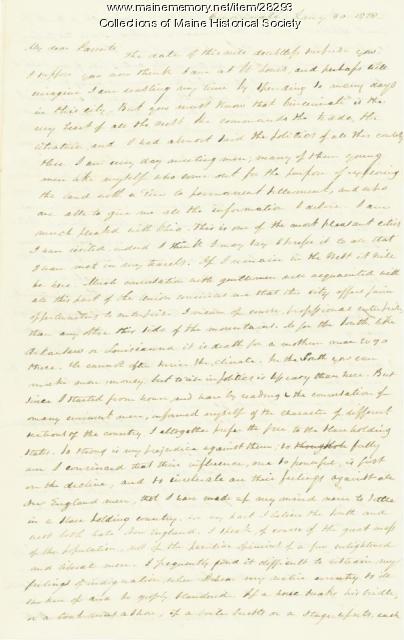 www.mainememory.net/item/28293
Collections of Maine Historical Society
My dear Parents The date of this will doubtless surprise you.
I suppose you now think I am at St Louis, and perhaps will
imagine I am wasting my time by spending so many days
in this city. But you must know that Cincinnati is the
very heart of all the West. She commands the trade, the
literature, and I had almost said the politics of all this country
Here I am every day meeting men, many of them young
men like myself who come out for the purpose of exploring
the land with a view to permanent settlement, and who
are able to give me all the information I desire. I am
much pleased with Ohio. This is one of the most pleasant cities
I have visited indeed I think I may say I prefer it to all that
I have met in my travels. If I remain in the West it will
be here. Much conversation with gentlemen well acquainted with
all this part of the Union convinces me that this city offers finer
opportunities to enterprise I mean of course, professional enterprise,
than any other this side of the mountains. As for the South, like
Arkansaw or Louisianna it is death for a northern man to go
there. He cannot often survive the climate. In the South you can
make more money but to rise in politics is less easy than here. But
since I started from home, and have by reading & the conversation of
many eminent men, informed myself of the character of different
sections of the country I altogether prefer the free to the slave holding
states. So strong is my prejudice against them, so fully
am I convinced that their influence, once so powerful, is fast
on the decline, and so inveterate are their feelings against all
New England men, that I have made up my mind never to settle
in a slave holding country. in my heart I believe the South and
west both hate New England. I speak of course of the great mass
of the population, not of the peculiar opinions of a few enlightened
and liberal men. I frequently find it difficult to restrain my
feelings of indignation, when I hear my native country so
and so grossly slandered. If a horse breaks his bridle,
or a boat a shore, if a boiler bursts or a stage upsets, each